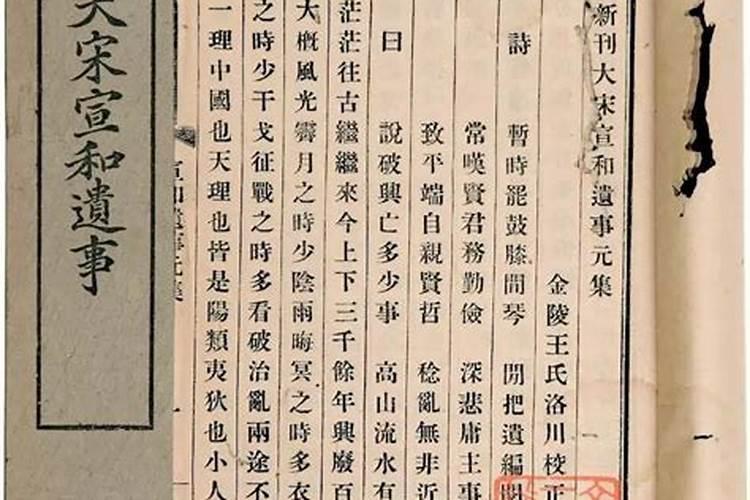 大宋宣和遺事
新刊大宋宣和遺事元集
金陵王氏洛川校正
詩 暫時罷鼓膝間琴 閒把遺編閱
常嘆賢君務勤儉 深悲庸主事
致平端自親賢哲 稔亂無非近
曰 說破興亡多少事 高山流水有
茫茫往古繼繼來今上下三千餘年興廢百
大概風光霽月之時少陰雨晦冥之時多衣
之時少干戈征戰之時多看破治亂兩途不
一理中國也天理也皆是陽類夷狄也小人
宣和遺事元集